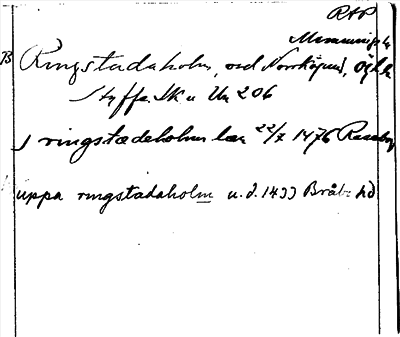 RAP
B Ringstadaholm, vid Norrköping, Ögl.
Styffe. SK u Un 206
J ringstadeholm 22/7 1476
uppa ringstadaholm u. d. 1433 Bråb. hd